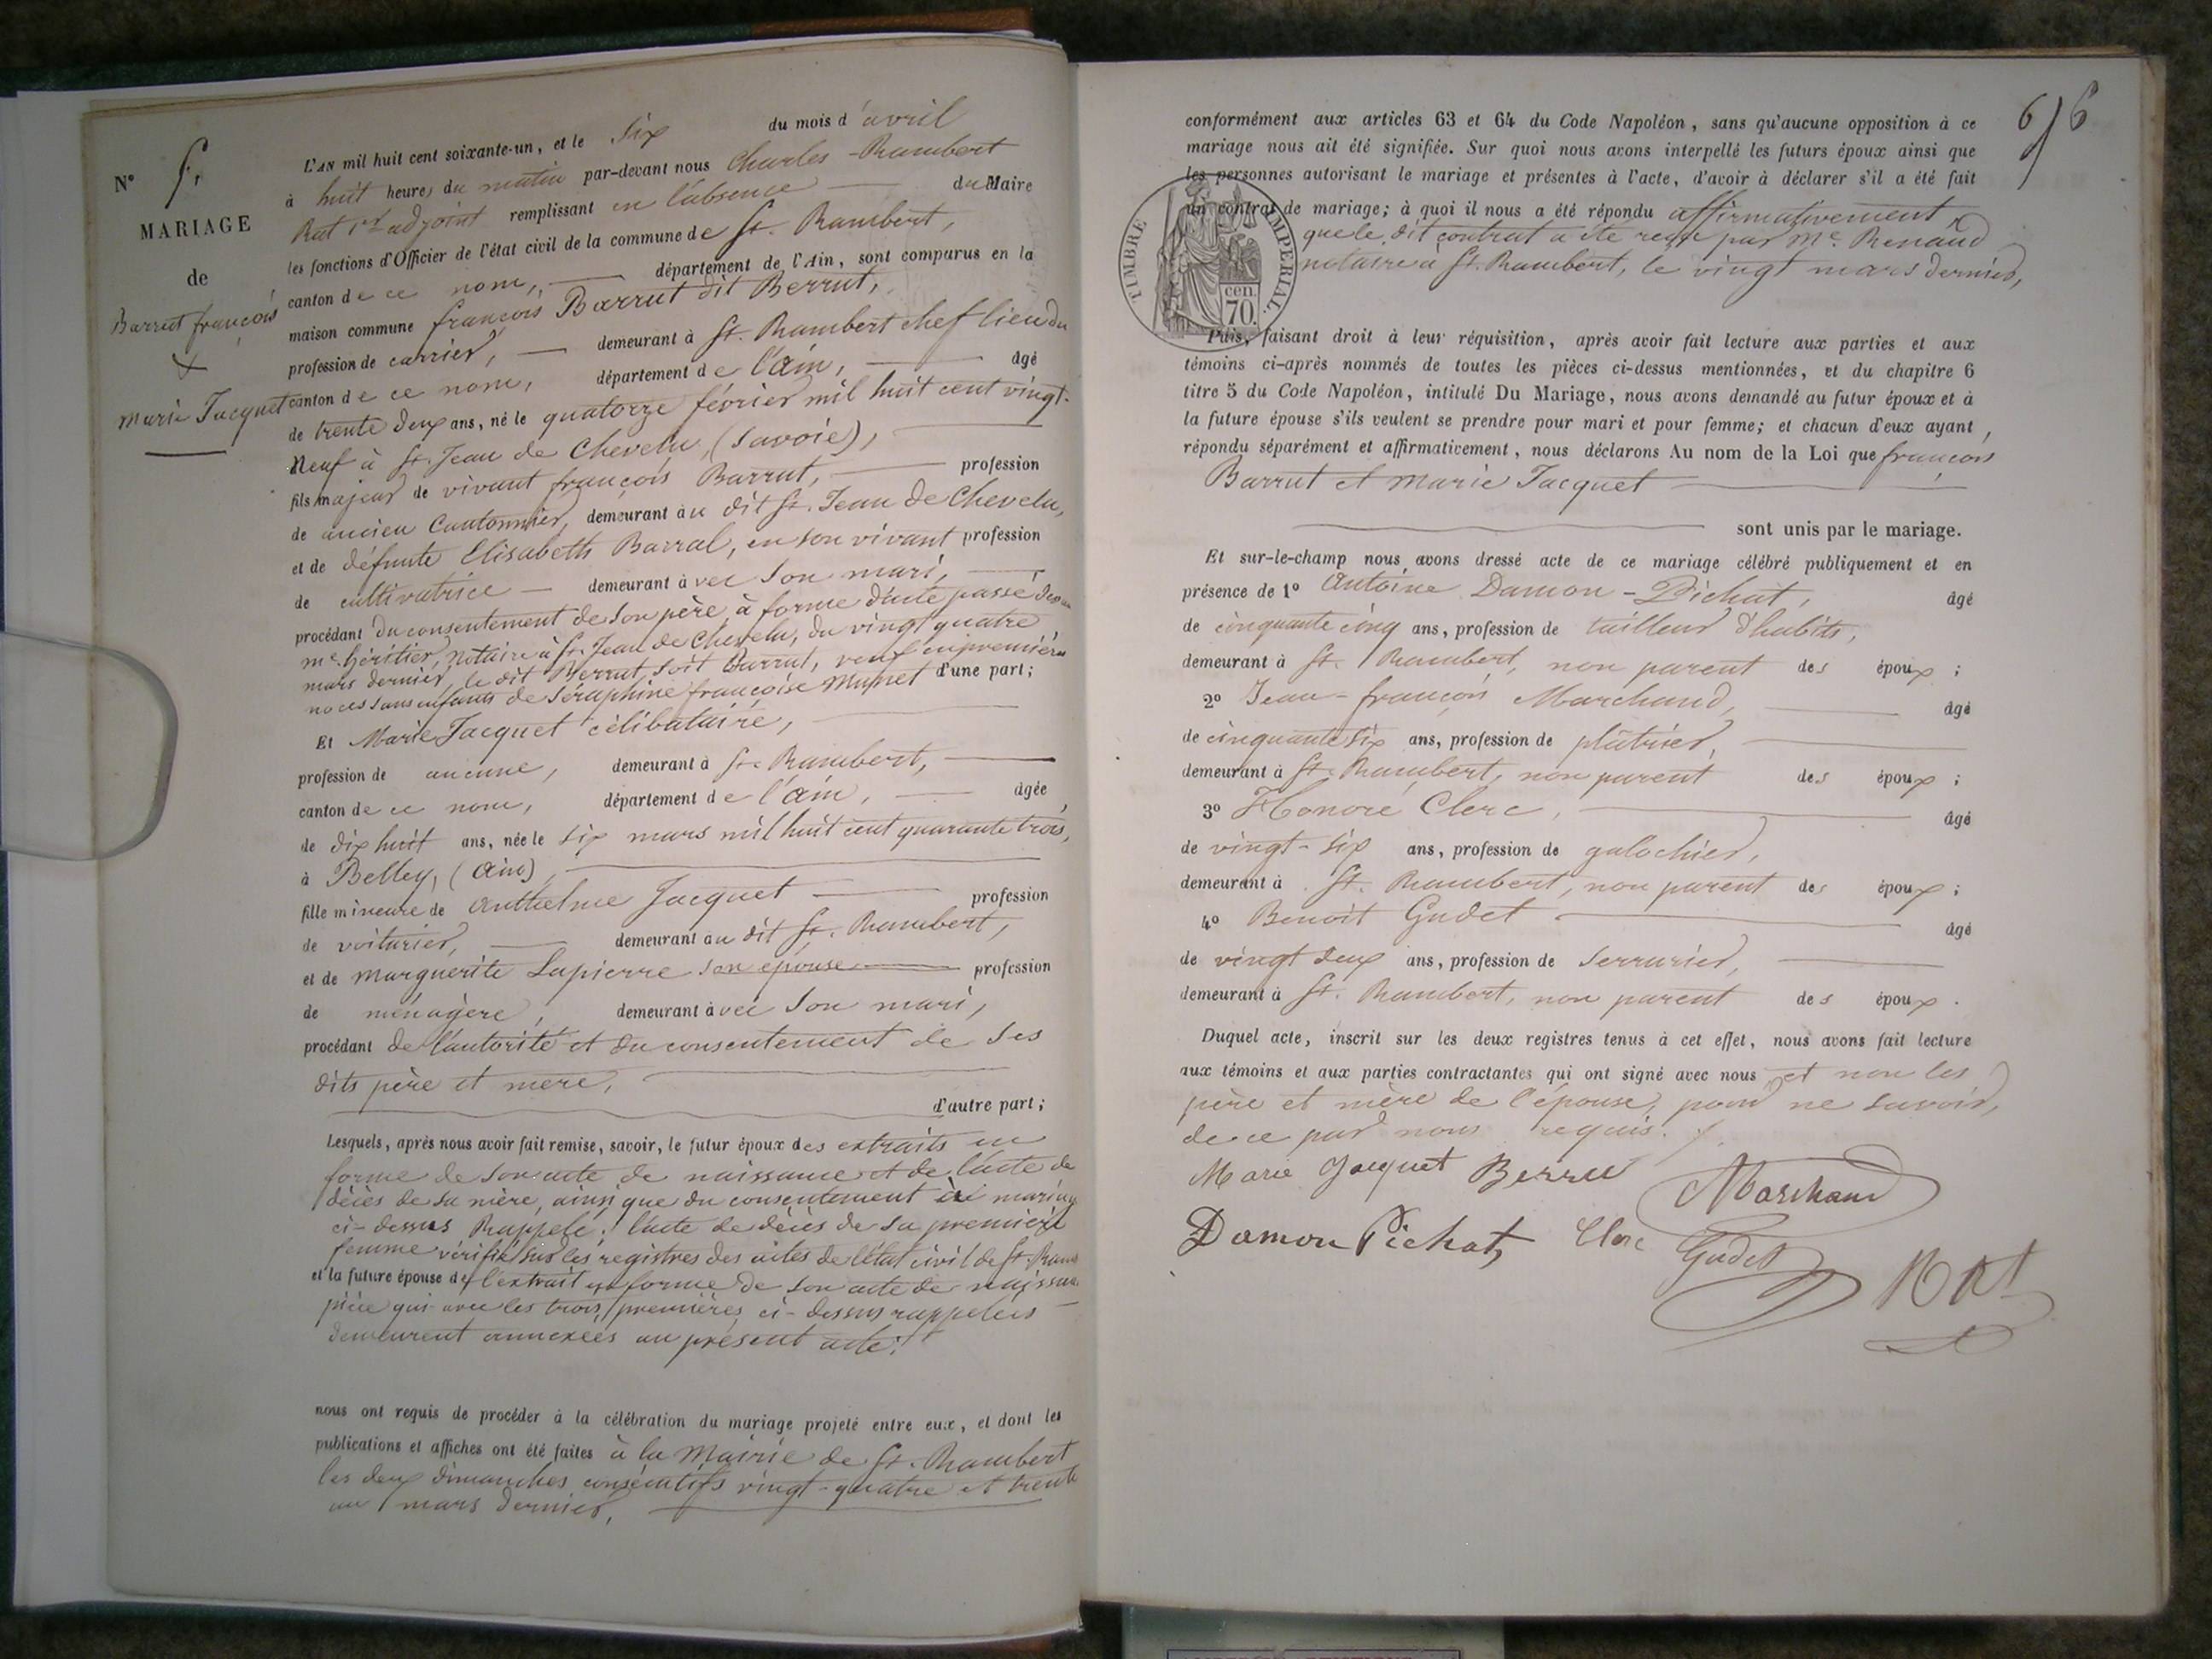 N° 5.
MARIAGE
de
Barrut françois
&
marie Jacquet
L'AN mil huit cent soixante-un, et le six du mois d'avril
à huit heures du matin par-devant nous Charles-Rambert
Rat 1er adjoint remplissant en l'absence du Maire
les fonctions d'Officier de l'état civil de la commune de St. Rambert,
canton de ce nom, département de l'Ain, sont comparus en la
maison commune françois Barrut dit Berrut,
profession de carrier, demeurant à St. Rambert chef lieu du
canton de ce nom, département de l'Ain, âgé
de trente deux ans, né le quatorze février mil huit cent vingt-
Neuf à St. Jean de Chevelu, (Savoie),
fils majeur de vivant françois Barrut, profession
de ancien Cantonnier, demeurant au dit St. Jean de Chevelu,
et de défunte Elisabeth Barral, en son vivant profession
de cultivatrice demeurant avec son mari,
procédant du consentement de son père à forme d'acte passé devant
me. héritier, Notaire à St. Jean de Chevelu, du vingt quatre
mars dernier, le dit Berrut, soit Barrut, veuf en premières
noces sans enfants de Séraphine françoise d'une part;
Et Marie Jacquet célibataire,
profession de aucune, demeurant à St. Rambert,
canton de ce nom, département de l'Ain, âgée
de dix huit ans, née le six mars mil huit cent quarante trois,
à Belley, (Ain),
fille mineure de Anthelme Jacquet profession
de voiturier, demeurant au dit St. Rambert,
et de marguerite Lapierre son épouse profession
de ménagère, demeurant avec son mari,
procédant de l'autorité et du consentement de ses
dits père et mère,
d'autre part;
Lesquels, après nous avoir fait remise, savoir, le futur époux des extraits en
forme de son acte de naissance et de l'acte de
décès de sa mère, ainsi que du consentement
ci-dessus Rappelé; l'acte de décès de sa première
femme vérifié sur les registres des actes de l'état civil de St. Ramb
et la future épouse de l'extrait en forme de son acte de naissance
pièce qui avec les trois premières ci-dessus rappelées
demeurent annexées au présent acte.
nous ont requis de procéder à la célébration du mariage projeté entre eux, et dont les
publications et affiches ont été faites à la Mairie de St. Rambert
les deux dimanches consécutifs vingt-quatre et trente
un mars dernier,
6 6
conformément aux articles 63 et 64 du Code Napoléon, sans qu'aucune opposition à ce
mariage nous ait été signifiée. Sur quoi nous avons interpellé les futurs époux ainsi que
les personnes autorisant le mariage et présentes à l'acte, d'avoir à déclarer s'il a été fait
un contrat de mariage; à quoi il nous a été répondu affirmativement
que le dit contrat a été reçu par Me. Renaud
notaire à St. Rambert, le vingt mars dernier,
TIMBRE IMPÉRIAL.
70. cen.
Puis, faisant droit à leur réquisition, après avoir fait lecture aux parties et aux
témoins ci-après nommés de toutes les pièces ci-dessus mentionnées, et du chapitre 6
titre 5 du Code Napoléon, intitulé Du Mariage, nous avons demandé au futur époux et à
la future épouse s'ils veulent se prendre pour mari et pour femme; et chacun d'eux ayant
répondu séparément et affirmativement, nous déclarons Au nom de la Loi que françois
Barrut et Marie Jacquet
sont unis par le mariage.
Et sur-le-champ nous avons dressé acte de ce mariage célébré publiquement et en
présence de 1° Antoine Damon-Pichat, âgé
de cinquante cinq ans, profession de tailleur d'habits,
demeurant à St. Rambert, non parent des époux;
2° Jean-françois Marchand, âgé
de cinquante six ans, profession de plâtrier,
demeurant à St. Rambert, non parent des époux;
3° Honoré Clerc, âgé
de vingt-six ans, profession de galochier,
demeurant à St. Rambert, non parent des époux;
4° Benoit Gudet âgé
de vingt deux ans, profession de serrurier,
demeurant à St. Rambert, non parent des époux.
Duquel acte, inscrit sur les deux registres tenus à cet effet, nous avons fait lecture
aux témoins et aux parties contractantes qui ont signé avec nous, et non les
père et mère de l'épouse, pour ne savoir,
de ce par nous requis.
Marie Jacquet Berru Marchand
Damon Pichat Clerc Gudet Rat